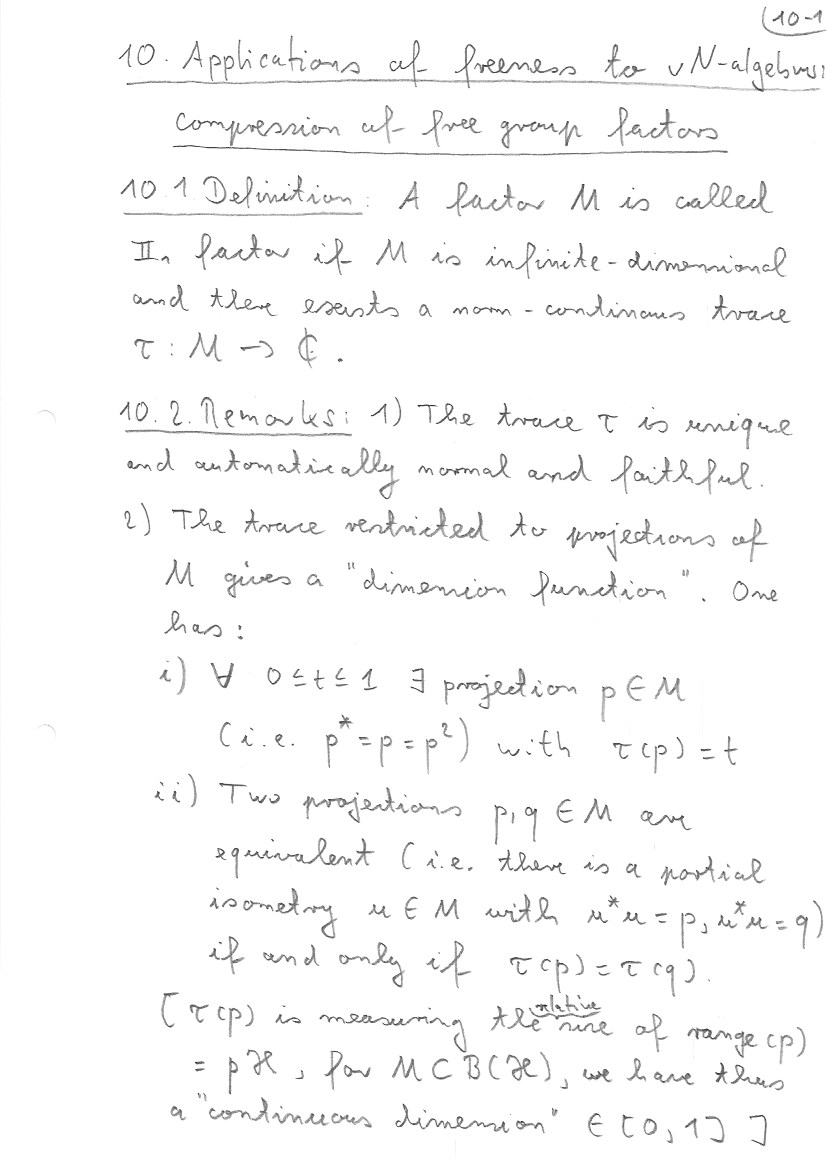 (10-1
10. Applications of freeness to vN-algebras:
compression of free group factors
10.1 Definition: A factor M is called
II₁ factor if M is infinite-dimensional
and there exists a norm-continuous trace
τ : M → ℂ.
10.2. Remarks: 1) The trace τ is unique
and automatically normal and faithful.
2) The trace restricted to projections of
M gives a "dimension function". One
has:
i) ∀ 0 ≤ t ≤ 1 ∃ projection p ∈ M
(i.e. p* = p = p²) with τ(p) = t
ii) Two projections p, q ∈ M are
equivalent (i.e. there is a partial
isometry u ∈ M with u*u = p, u*u = q)
if and only if τ(p) = τ(q).
[τ(p) is measuring the relative size of range(p)
= pℋ, for M ⊂ B(ℋ), we have thus
a "continuous dimension" ∈ [0,1] ]